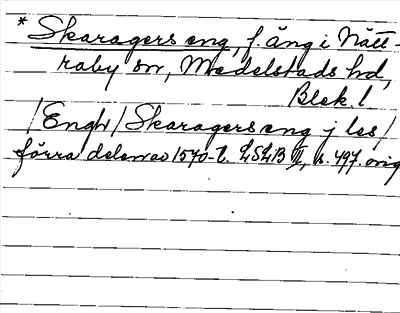 * Skaragers eng, f. äng i Nätt-
raby sn, Medelstads hd,
Blek. l.
/Engh/ Skaragers eng j les/
förra delen av 1570-t. LSLB II, s. 497. orig